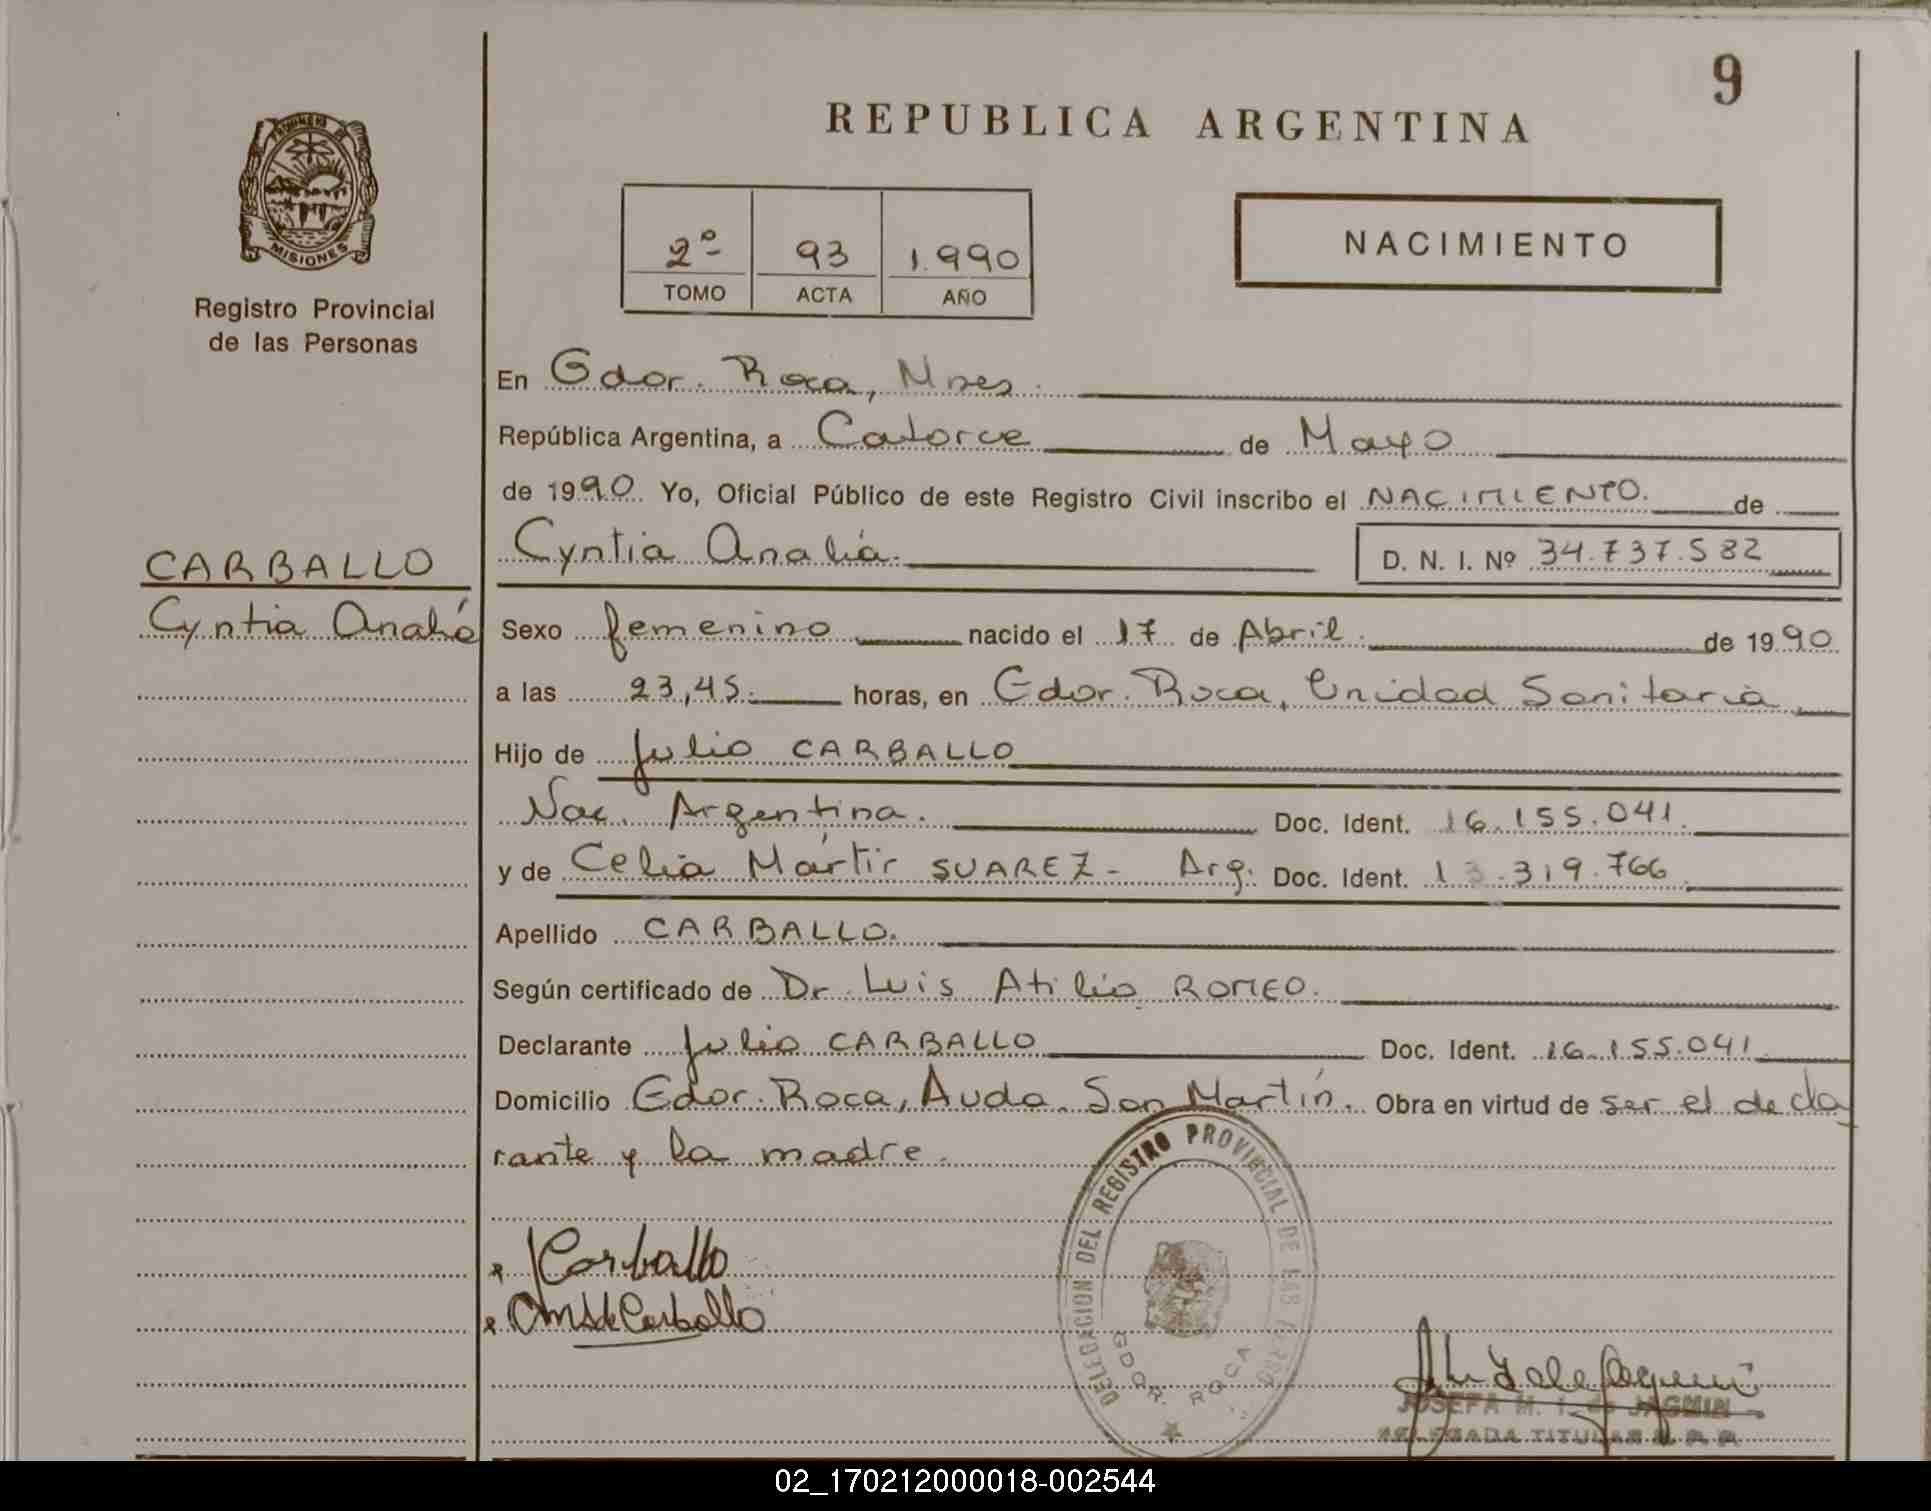 9
REPUBLICA ARGENTINA
MISIONES
Registro Provincial
de las Personas
2º 93 1.990
TOMO ACTA AÑO
NACIMIENTO
En Gdor. Roca, Mnes.
República Argentina, a Catorce de Mayo
de 1990. Yo, Oficial Público de este Registro Civil inscribo el NACIMIENTO. de
CARBALLO
Cyntia Analía
Cyntia Analía. D. N. I. Nº 34.737.582
Sexo femenino nacido el 17 de Abril. de 1990.
a las 23,45. horas, en Gdor. Roca, Unidad Sanitaria
Hijo de Julio CARBALLO
Nac. Argentina. Doc. Ident. 16.155.041.
y de Celia Mártir SUAREZ- Arg. Doc. Ident. 13.319.766
Apellido CARBALLO.
Según certificado de Dr. Luis Atilio ROMEO.
Declarante Julio CARBALLO Doc. Ident. 16.155.041
Domicilio Gdor. Roca, Avda. San Martín. Obra en virtud de ser el decla
rante y la madre.
Carballo
de Carballo
DELEGACION DEL REGISTRO PROVINCIAL DE LAS
GDOR. ROCA
JOSEFA M. I. de JAGMIN
DELEGADA TITULAR R. P. P.
02_170212000018-002544